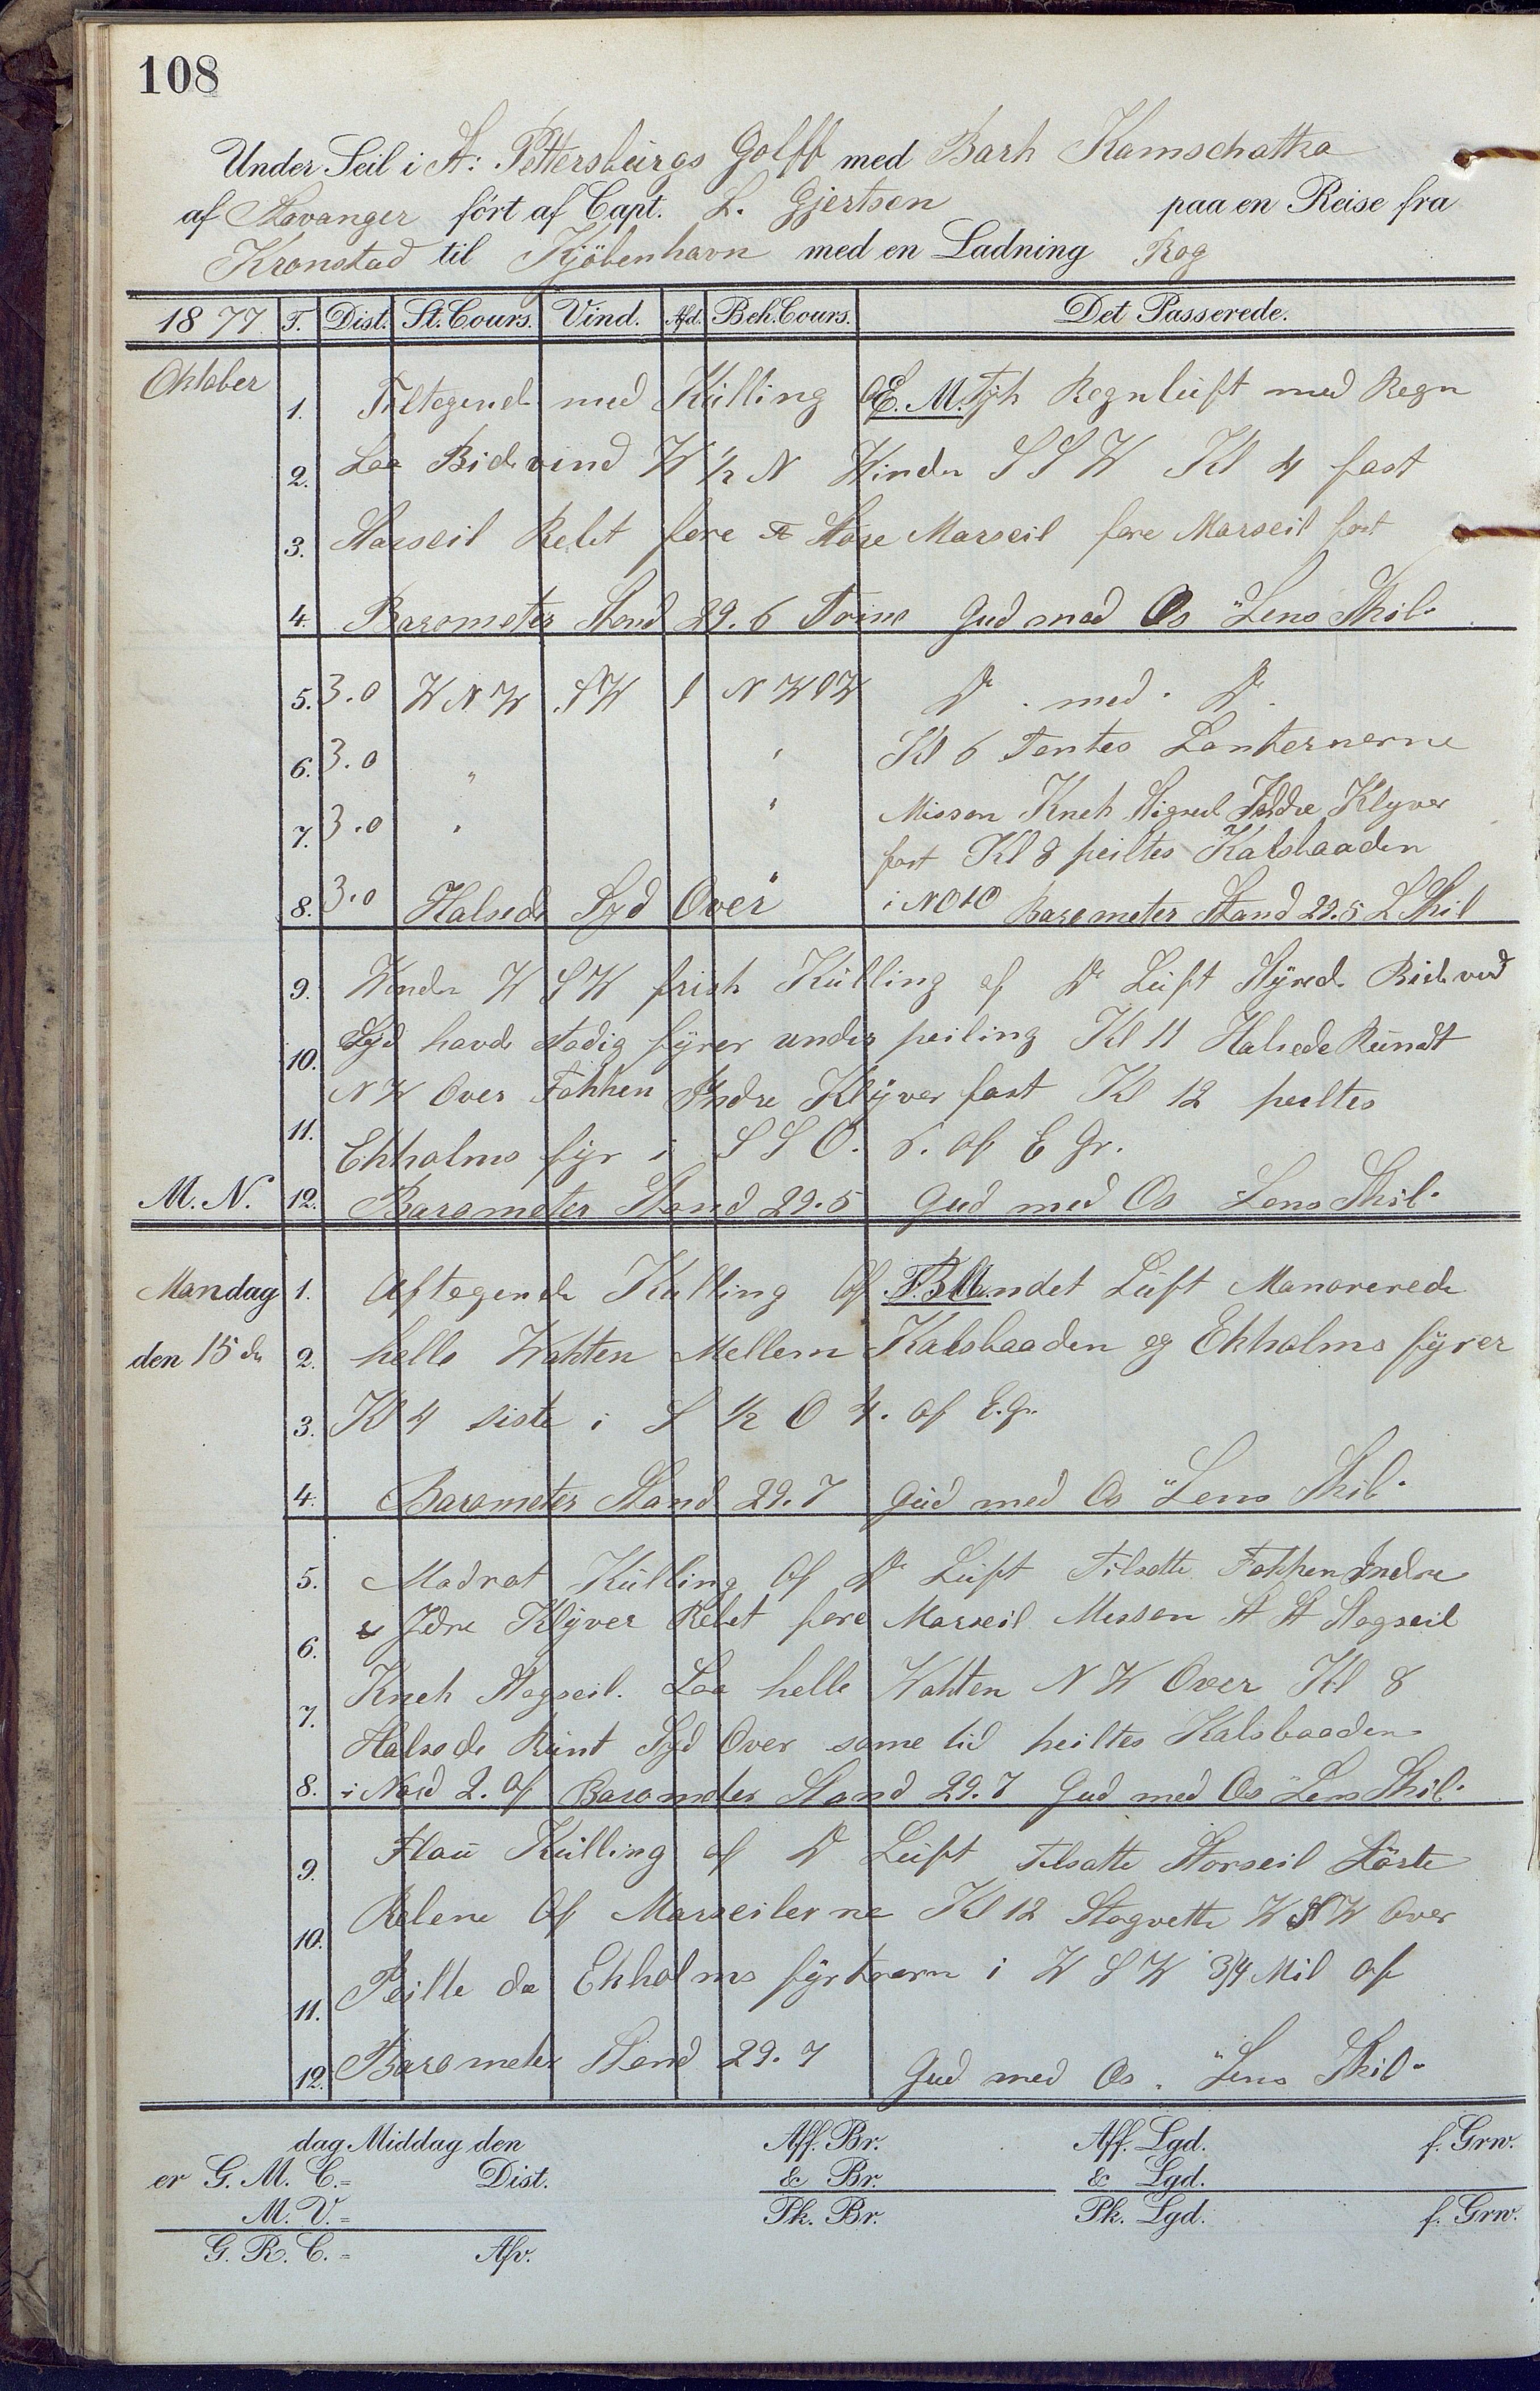 108
Under Seil i St: Pettersburgs Golff med Bark Kamschatka
af Stavanger ført af Capt. L. Gjertsen paa en Reise fra
Kronstad til Kjöbenhavn med en Ladning Rog
1877 T. Dist. St. Cours. Vind. Afd. Beh. Cours. Det Passerede.
Oktober 1. Tiltagende med Kulling E. M. Tyk Regnluft med Regn
2. Laa Bidevind W 1/2 N Winden S S W Kl 4 fast
3. Storseil Rebet fore Store Marseil fore Marseil fast
4. Barometer Stand 29.6 Gud med Os "Lens Skib"
5. 3.0 W N W SW 1 N W t W Do med Do
6. 3.0 " " Kl 6 Tentes Lanternerne
7. 3.0 " " Misson Knek Stagseil Indre Klyver
fast Kl 8 peiltes Kalsbaaden
8. 3.0 Halsede Syd Over " i NOtO Barometer Stand 29.5 L Skib
9. Winden W S W frisk Kulling af Do Luft Styred Bidevind
10. Syd havde stadig fyrer under peiling Kl 11 Halsede Rundt
N W Over Fokken Indre Klyver fast Kl 12 peiltes
11. Ekholms fyr i S S O. 6. af E Gr.
M. N. 12. Barometer Stand 29.5 Gud med Os Lens Skib"
Mandag 1. Aftagende Kulling Af F. M. Blandet Luft Manorerede
den 15de 2. helle Wakten Mellem Kalsbaaden og Ekholms fyrer
3. Kl 4 siste i S 1/2 O 4. af E. Gr.
4. Barometer Stand 29.7 Gud med Os "Lens Skib"
5. Madrat Kulling Af Do Luft Tilsatte Fokken Indre
6. Jdre Klyver Rebet fore Marseil Messon St St Stagseil
7. Knek Stagseil. Laa helle Wakten N W Over Kl 8
Halsede Runt Syd Over same tid peiltes Kalsbaaden
8. i Nord 2. af Barometer Stand 29.7 Gud med Os "Lens Skib"
9. Flau Kulling af Do Luft Tilsatte Storseil Löste
10. Rebene Af Marseilerne Kl 12 Stagvette W S W Over
11. Peilte da Ekholms fyrtaarn i W S W 3/4 Mil af
12. Barometer Stand 29.7 Gud med Os. "Lens Skib"
dag Middag den Aff. Br. Aff. Lgd. f. Grw.
er G. M. C.= Dist. & Br. & Lgd.
M. V.= Pk. Br. Pk. Lgd. f. Grw.
G. R. C.= Afv.